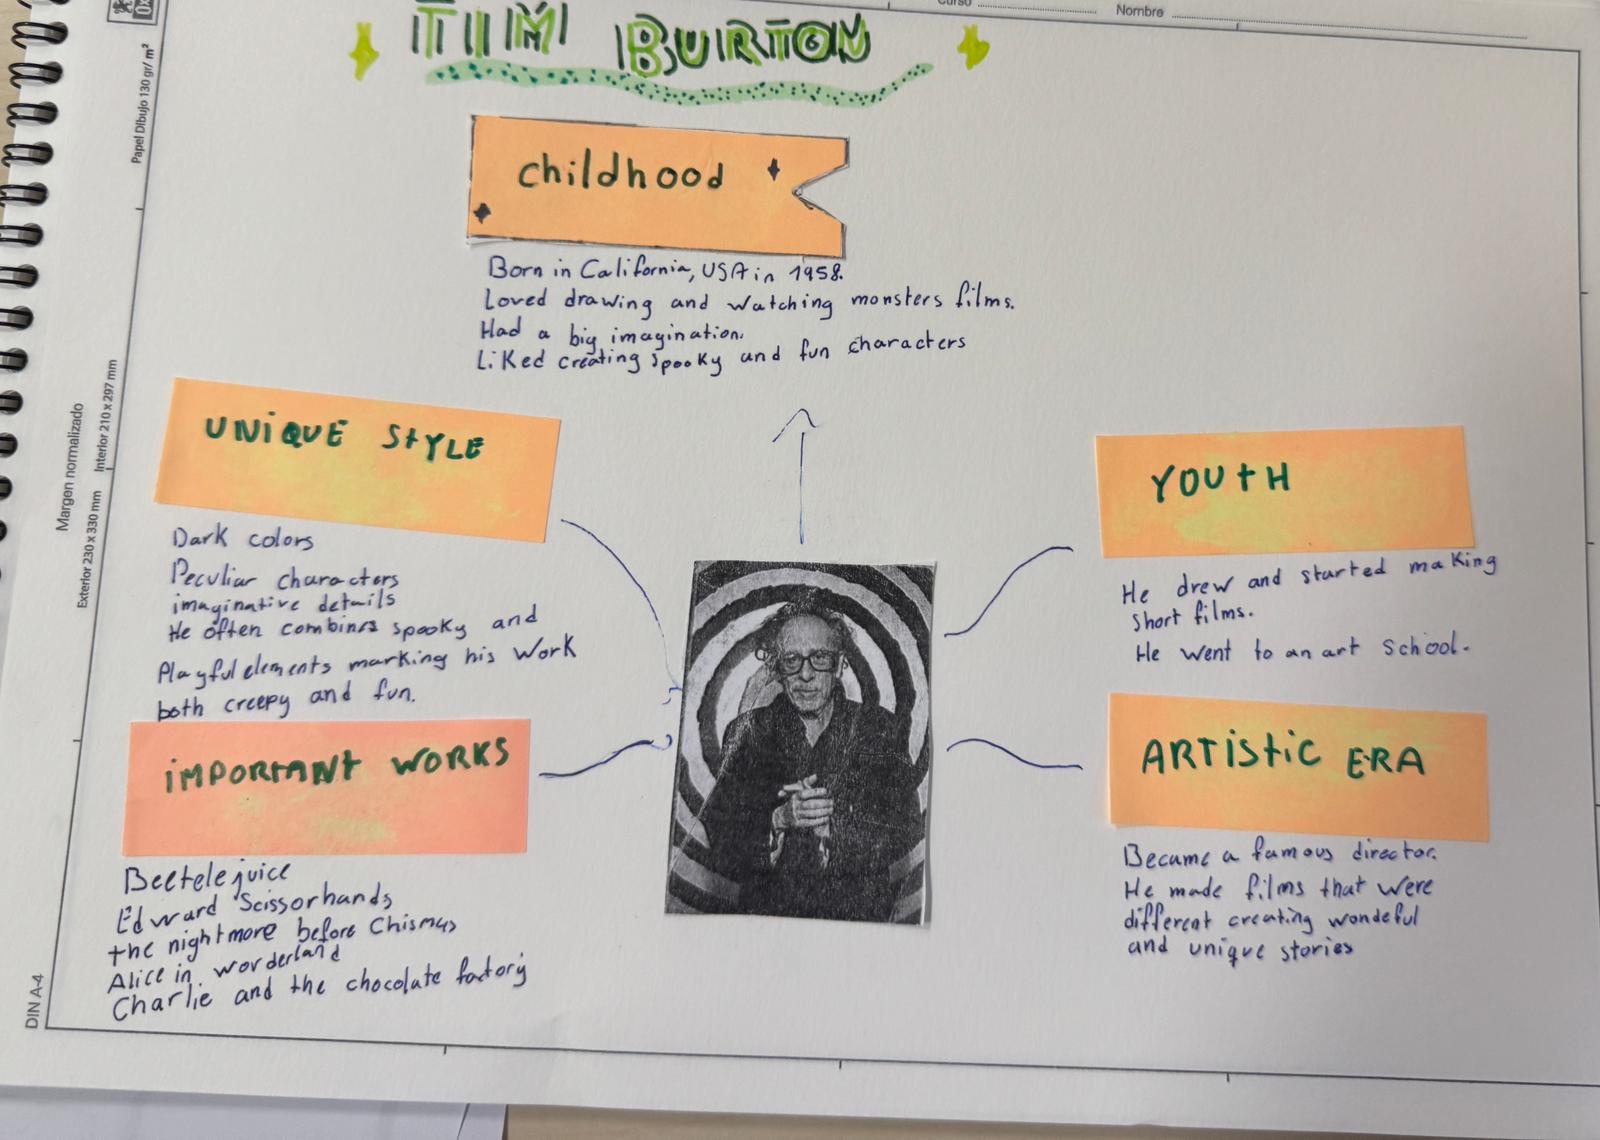 Curso
Nombre
Papel Dibujo 130 gr/m²
Margen normalizado
Exterior 230 x 330 mm Interior 210 x 297 mm
DIN A-4
TIM BURTON
childhood
Born in California, USA in 1958.
Loved drawing and watching monsters films.
Had a big imagination.
Liked creating spooky and fun characters
UNIQUE STYLE
Dark colors
Peculiar characters
imaginative details
He often combines spooky and
Playful elements marking his work
both creepy and fun.
IMPORTANT WORKS
Beetelejuice
Edward Scissorhands
the nightmore before Chismas
Alice in worderland
Charlie and the chocolate factory
YOUTH
He drew and started making
short films.
He went to an art School.
ARTISTIC ERA
Became a famous director.
He made films that were
different creating wondeful
and unique stories